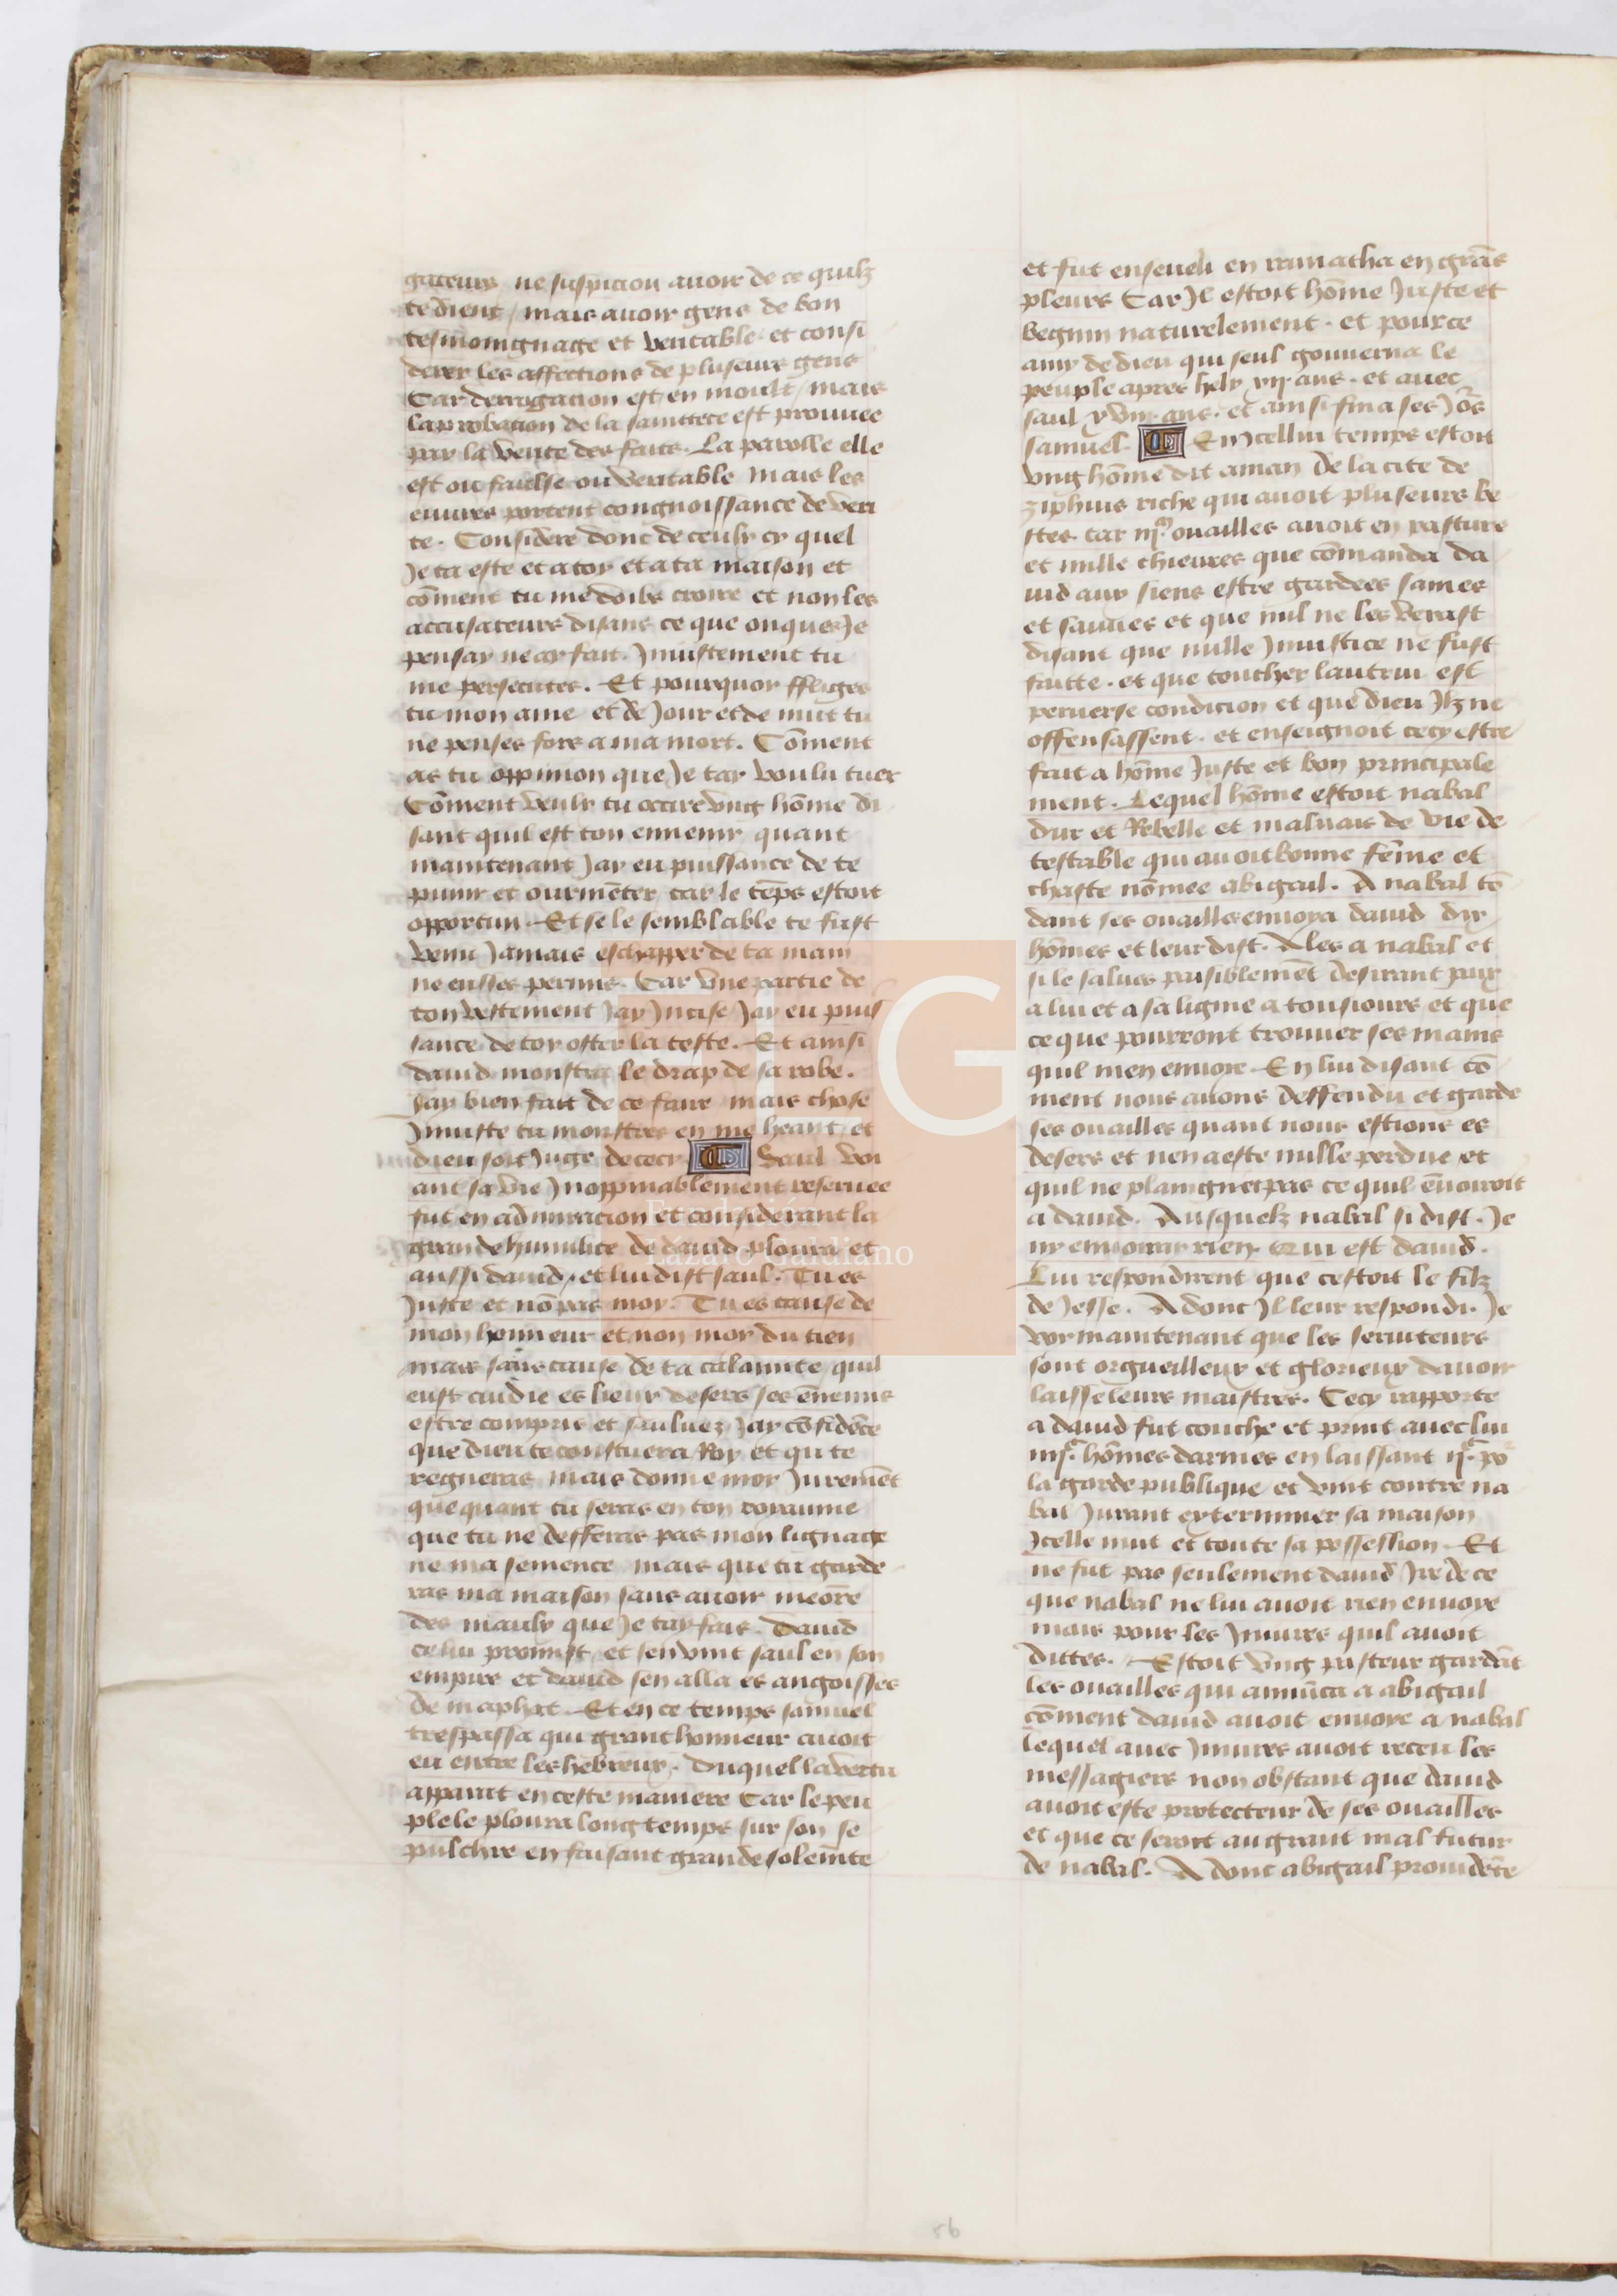 gateurs ne suspicion auoir de ce quilz
te dient / mais auoir gens de bon
tesmoingnage et veritable et consi
derer les affections de pluseurs gens
Car derrogacion est en moult / mais
laprobacion de la sainttete est prouuee
par la verite des faits. La parolle elle
est ou faulse ou veritable mais les
euures portent congnoissance de veri
te. Considere donc de ceulx cy quel
Je ta este et a toy et a ta maison et
cōment tu me doibs croire et non les
accusateurs disans ce que onques Je
pensay ne ay fait. Jniustement tu
me persecutes. Et pourquoy ffliges
tu mon ame et de Jour et de nuit tu
ne penses fors a ma mort. Cōment
as tu oppinion que Je tay voulu tuer
Cōment veulx tu occire vng hōme di
sant quil est ton ennemy quant
maintenant Jay eu puissance de te
punir et ourmēter car le tēps estoit
opportun. Et se le semblable te fust
venu Jamais eschapper de ta main
ne eusses permis. Car vne partie de
ton vestement Jay Jncise Jay eu puis
sance de toy oster la teste. Et ainsi
dauid monstra le drap de sa robe.
Jay bien fait de ce faire mais chose
Jniuste tu monstres en me heant et
dieu soit Juge de cecy Saul voi
ant sa vie Jnoppinablement reseruee
fut en admiracion et considerant la
grande humilite de dauid ploura et
aussi dauid / et lui dist saul. Tu es
Juste et nō pas moy. Tu es cause de
mon honneur et non moy du tien
mais sans cause de ta calamite quil
eust cuidie es lieux desers ses ēnemis
estre compris et sauluez Jay cōfidēce
que dieu te constuera Roy et qu te
regneras mais donne moy Juremēt
que quant tu seras en ton roiaume
que tu ne defferas pas mon lignage
ne ma semence mais que tu garde
ras ma maison sans auoir meōre
des maulx que Je tay fais. Dauid
ce lui promist et sen vint saul en son
empire et dauid sen alla es angoisses
de maphat. Et en ce temps samuel
trespassa qui grant honneur auoit
eu entre les hebreux. Duquel la vertu
apparut en ceste maniere Car le peu
ple le ploura long temps sur son se
pulchre en faisant grande solemite
et fut enseueli en ramatha en grās
pleurs Car Jl estoit hōme Juste et
begnin naturelement. et pour ce
amy de dieu qui seul gouuerna le
peuple apres hely xij ans. et auec
saul xviij. ans. et ainsi fina ses Jōrs
samuel. En icellui temps estoit
vng hōme dit aman de la cite de
ziphuis riche qui auoit pluseurs be
stes. car iijᵐ ouailles auoit en pasture
et mille chieures que cōmanda da
uid aux siens estre gardees saines
et sauues et que nul ne les verast
disant que nulle Jniustice ne fust
faitte. et que toucher lautrui est
peruerse condicion et que dieu Jlz ne
offensassent. et enseignoit cecy estre
fait a hōme Juste et bon principale
ment. Lequel hōme estoit nabal
dur et Rebelle et maluais de vie de
testable qui auoit bonne fēme et
chaste nōmee abigail. A nabal tō
dant ses ouailles enuoya dauid dix
hōmes et leur dist. Ales a nabal et
si le salues paisiblemēt desirant paix
a lui et a sa lignie a tousiours et que
ce que pourront trouuer ses mains
quil men enuoie En lui disant cō
ment nous auons deffendu et garde
ses ouailles quant nous estions es
desers et nen a este nulle perdue et
quil ne plaingnet pas ce quil ēuoiroit
a dauid. Ausquelz nabal si dist. Je
ny enuoiray rien. Qui est dauid.
Lui respondirent que cestoit le filz
de Jesse. A donc Jl leur respondi. Je
voy maintenant que les seruiteurs
sont orgueilleux et glorieux dauoir
laisse leurs maistres. Cecy rapporte
a dauid fut couche et print auec lui
iiijᶜ hōmes darmes en laissant ijᶜ po
la garde publique et vint contre na
bal Jurant exterminer sa maison
Jcelle nuit et toute sa possession. Et
ne fut pas seulement dauid Jre de ce
que nabal ne lui auoit rien enuoye
mais pour les Jniures quil auoit
dittes. Estoit vng pasteur gardāt
les ouailles qui annūca a abigail
cōment dauid auoit enuoye a nabal
lequel auec Jniures auoit receu les
messagiers non obstant que dauid
auoit este protecteur de ses ouailles
et que ce seroit au grant mal futur
de nabal. A donc abigail prouidēte
56
FLG
Fundación
Lázaro Galdiano